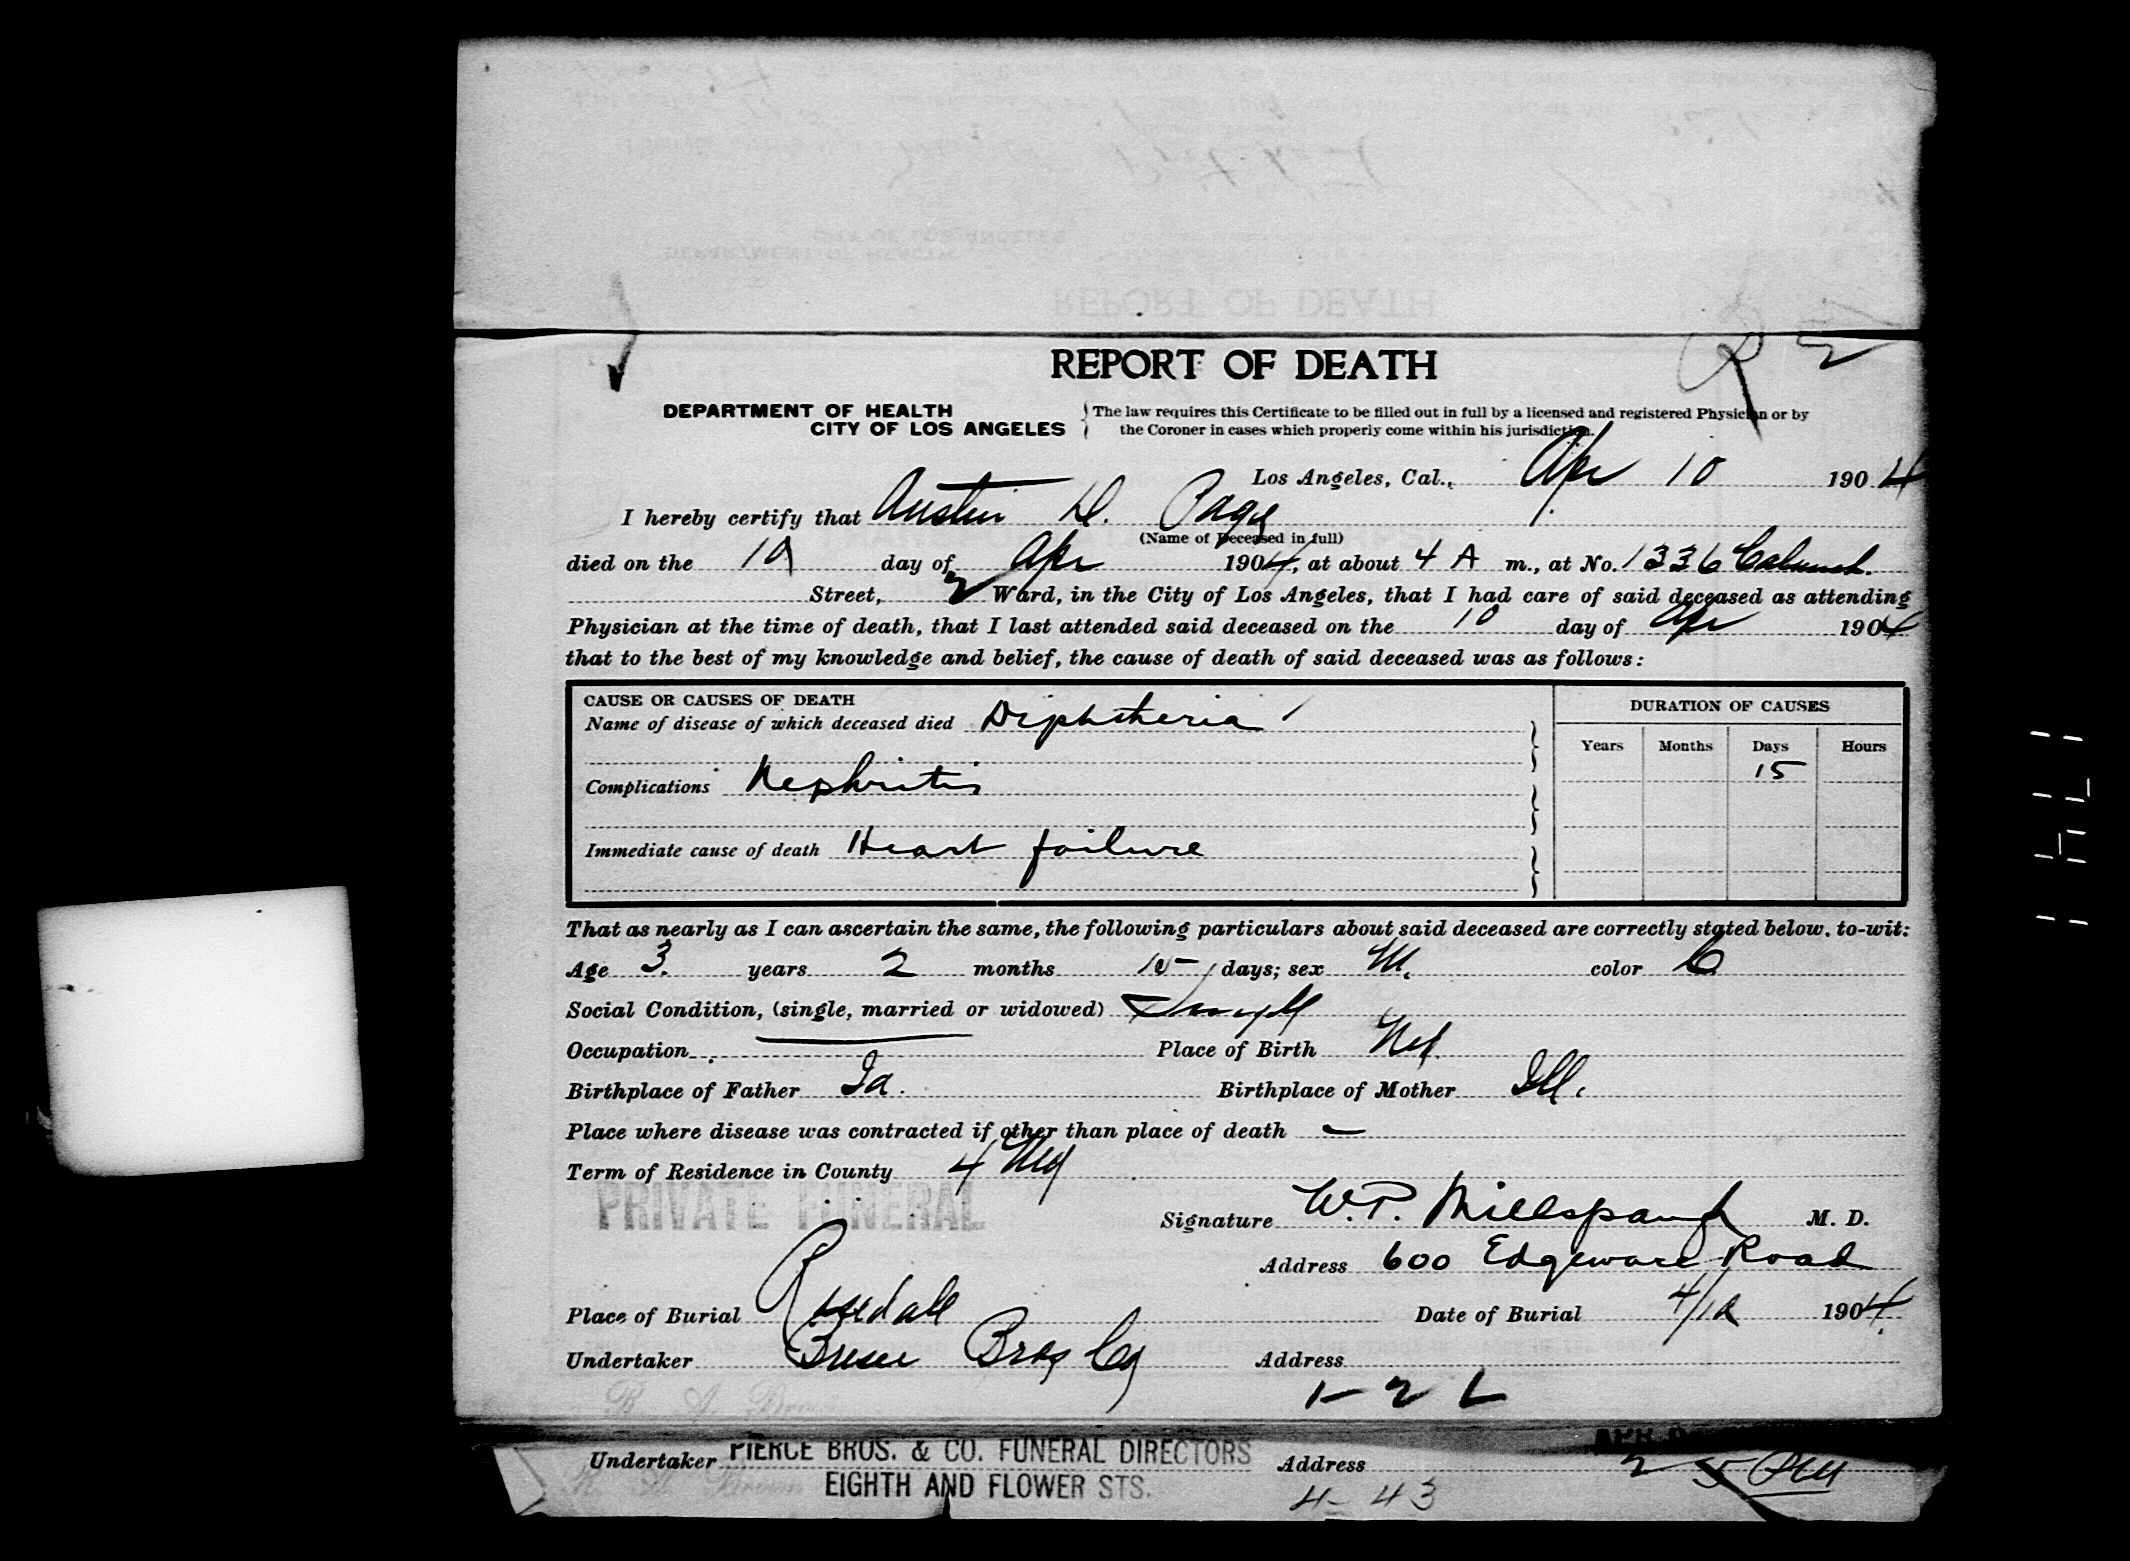 REPORT OF DEATH
DEPARTMENT OF HEALTH
CITY OF LOS ANGELES
The law requires this Certificate to be filled out in full by a licensed and registered Physician or by
the Coroner in cases which properly come within his jurisdiction.
Los Angeles, Cal., Apr 10 1904
I hereby certify that Austin H. Page
(Name of Deceased in full)
died on the 10 day of Apr 1904, at about 4 A m., at No. 1336
Street, 2 Ward, in the City of Los Angeles, that I had care of said deceased as attending
Physician at the time of death, that I last attended said deceased on the 10 day of Apr 1904
that to the best of my knowledge and belief, the cause of death of said deceased was as follows:
CAUSE OR CAUSES OF DEATH
DURATION OF CAUSES
Name of disease of which deceased died Diphtheria
Years Months Days Hours
15
Complications Nephritis
Immediate cause of death Heart failure
That as nearly as I can ascertain the same, the following particulars about said deceased are correctly stated below. to-wit:
Age 3 years 2 months 15 days; sex M. color C
Social Condition, (single, married or widowed) Single
Occupation Place of Birth
Birthplace of Father Ia. Birthplace of Mother Ill.
Place where disease was contracted if other than place of death —
Term of Residence in County 4
PRIVATE FUNERAL
Signature W.P. Millspaugh M. D.
Address 600 Edgeware Road
Place of Burial Rosedale Date of Burial 4/10 1904
Undertaker Bresee Bros Co Address
1- 2 L
Undertaker PIERCE BROS. & CO. FUNERAL DIRECTORS Address
EIGHTH AND FLOWER STS.
4- 43